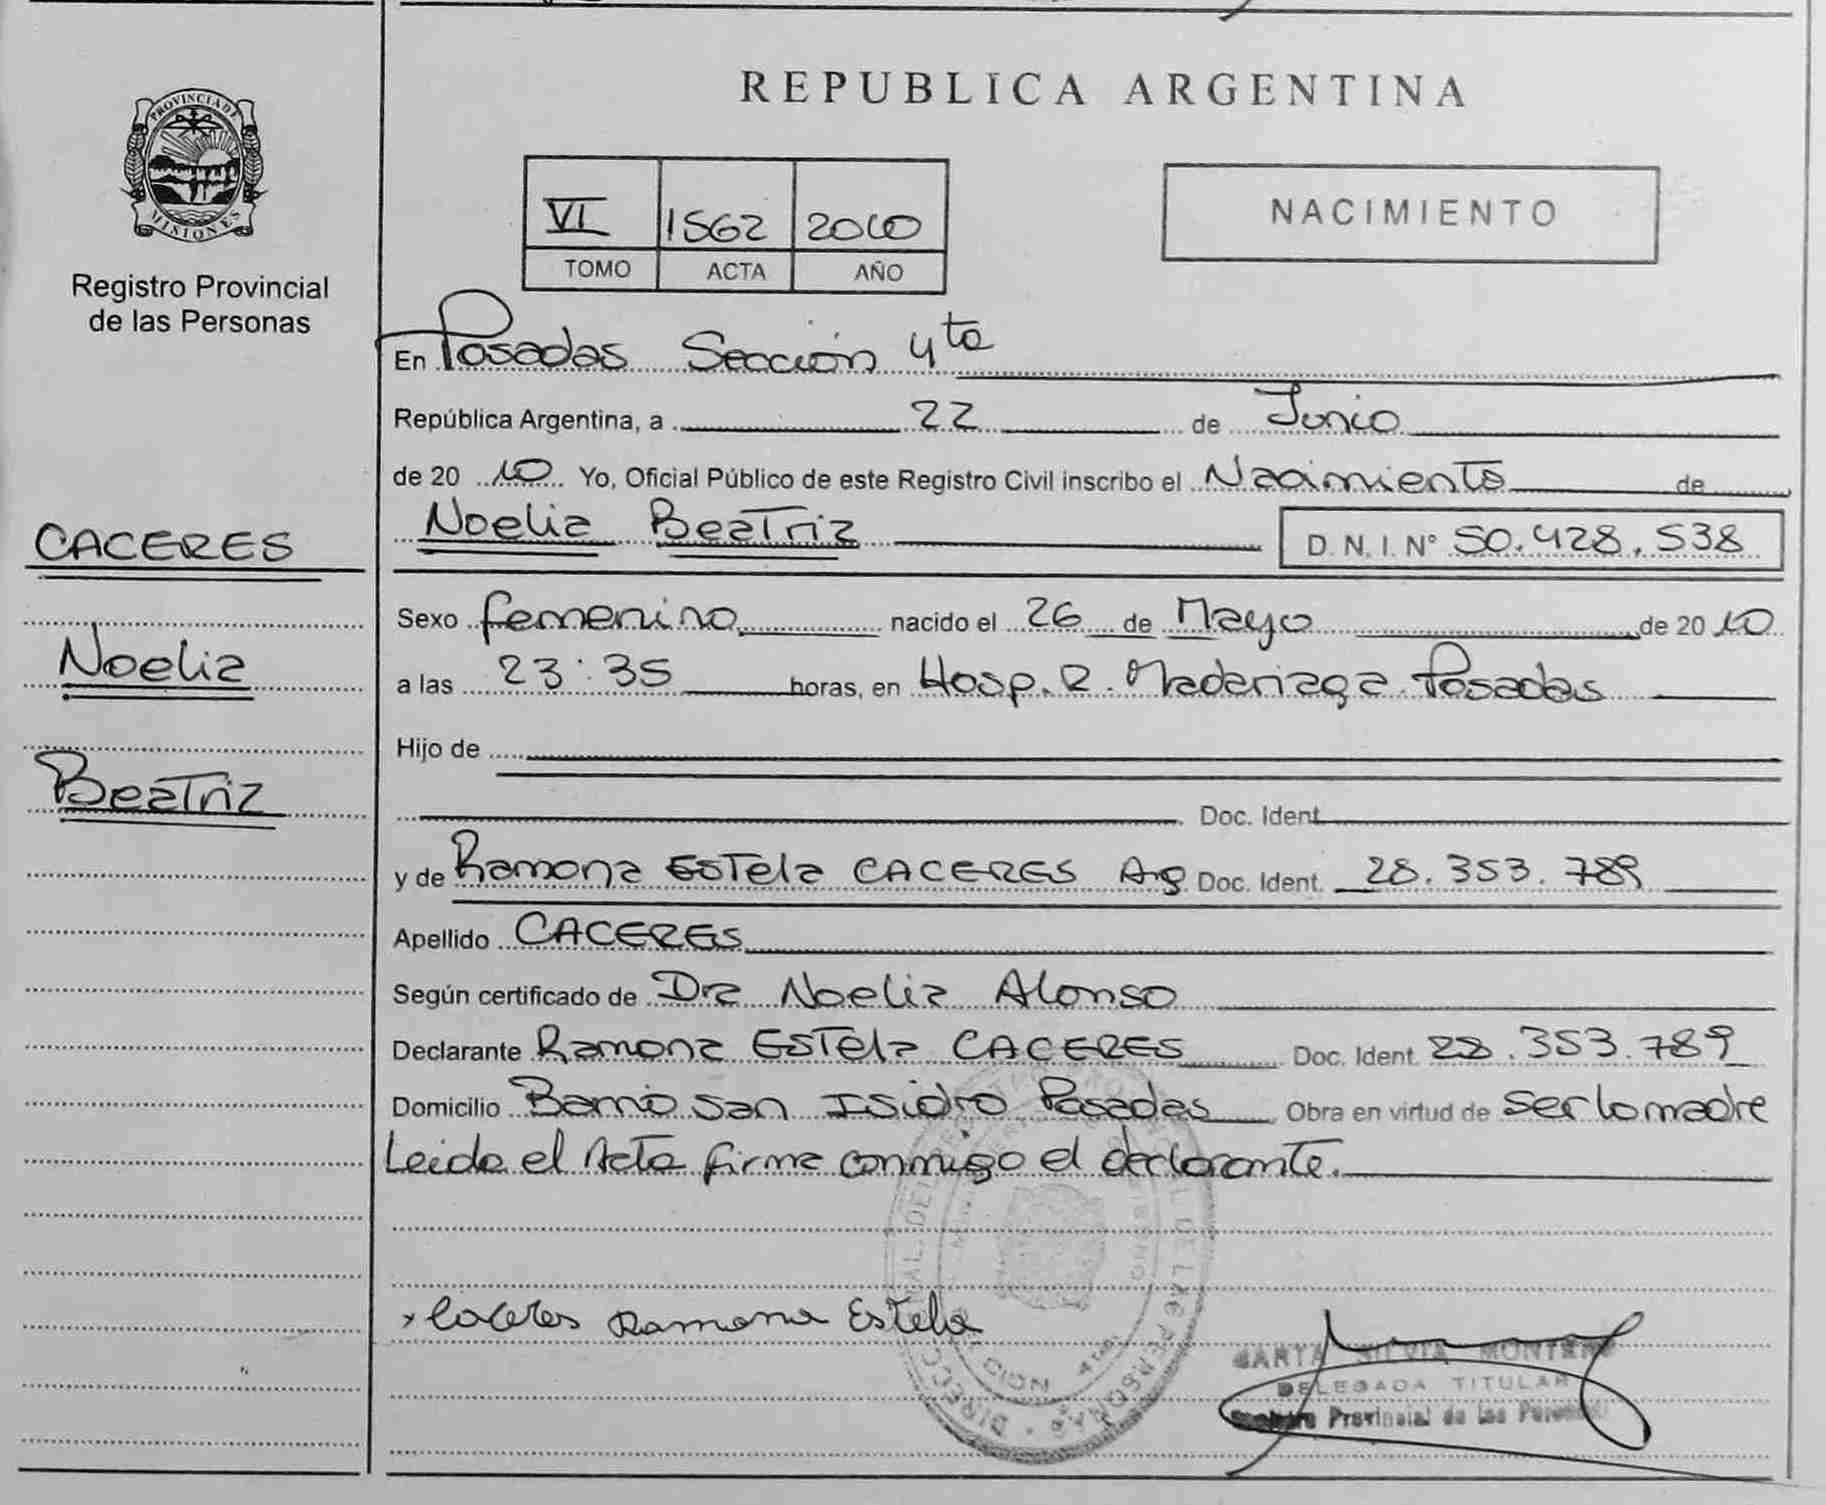 PROVINCIA DE
MISIONES
Registro Provincial
de las Personas
CACERES
Noelia
Beatriz
REPUBLICA ARGENTINA
VI 1562 2010
TOMO ACTA AÑO
NACIMIENTO
En Posadas Sección 4ta
República Argentina, a 22 de Junio
de 20 10 Yo, Oficial Público de este Registro Civil inscribo el Nacimiento de
Noelia Beatriz D. N. I. N° 50.428.538
Sexo femenino nacido el 26 de Mayo de 20 10
a las 23:35 horas, en Hosp. R. Madariaga Posadas
Hijo de
Doc. Ident.
y de Ramona Estela CACERES Ag Doc. Ident. 28.353.789
Apellido CACERES
Según certificado de Dra Noelia Alonso
Declarante Ramona Estela CACERES Doc. Ident. 28.353.789
Domicilio Barrio San Isidro Posadas Obra en virtud de ser la madre
Leida el Acta firma conmigo el declarante.
x Caceres Ramona Estela
SILVIA MONTERO
DELEGADA TITULAR
Provincial de las Personas